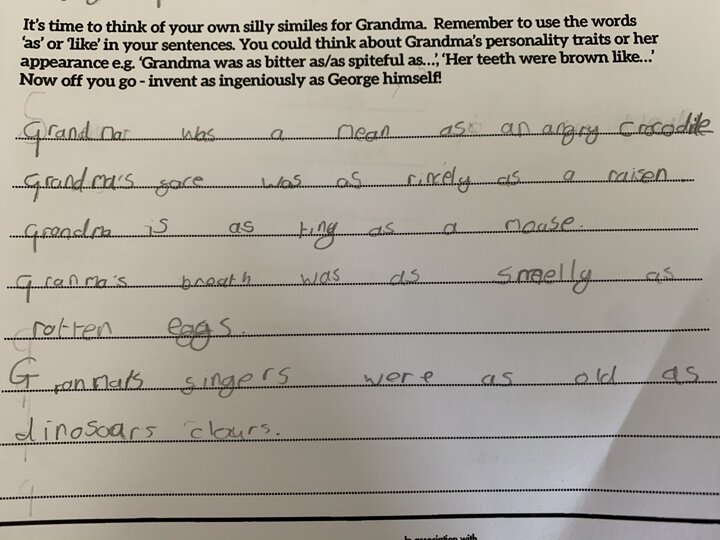 It's time to think of your own silly similes for Grandma. Remember to use the words
'as' or 'like' in your sentences. You could think about Grandma's personality traits or her
appearance e.g. 'Grandma was as bitter as/as spiteful as...', 'Her teeth were brown like...'
Now off you go - invent as ingeniously as George himself!
Grandma was a mean as an angry crocodile
Grandma's face was as rincely as a raisen
Grandma is as ting as a mouse.
Granma's breath was as smelly as
rotten eggs.
Granma's singers were as old as
dinosoars clours.
In association with